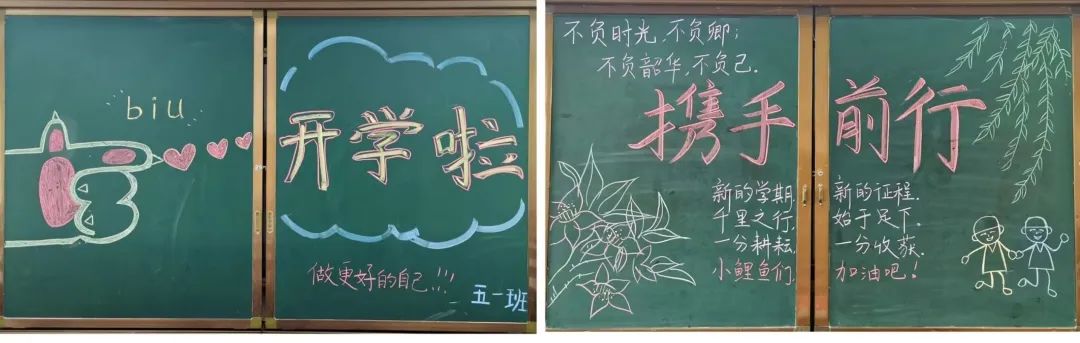 biu
开学啦
做更好的自己!!!
五一班
不负时光,不负卿;
不负韶华,不负己.
携手前行
新的学期,新的征程.
千里之行,始于足下.
一分耕耘,一分收获.
小鲤鱼们,加油吧!